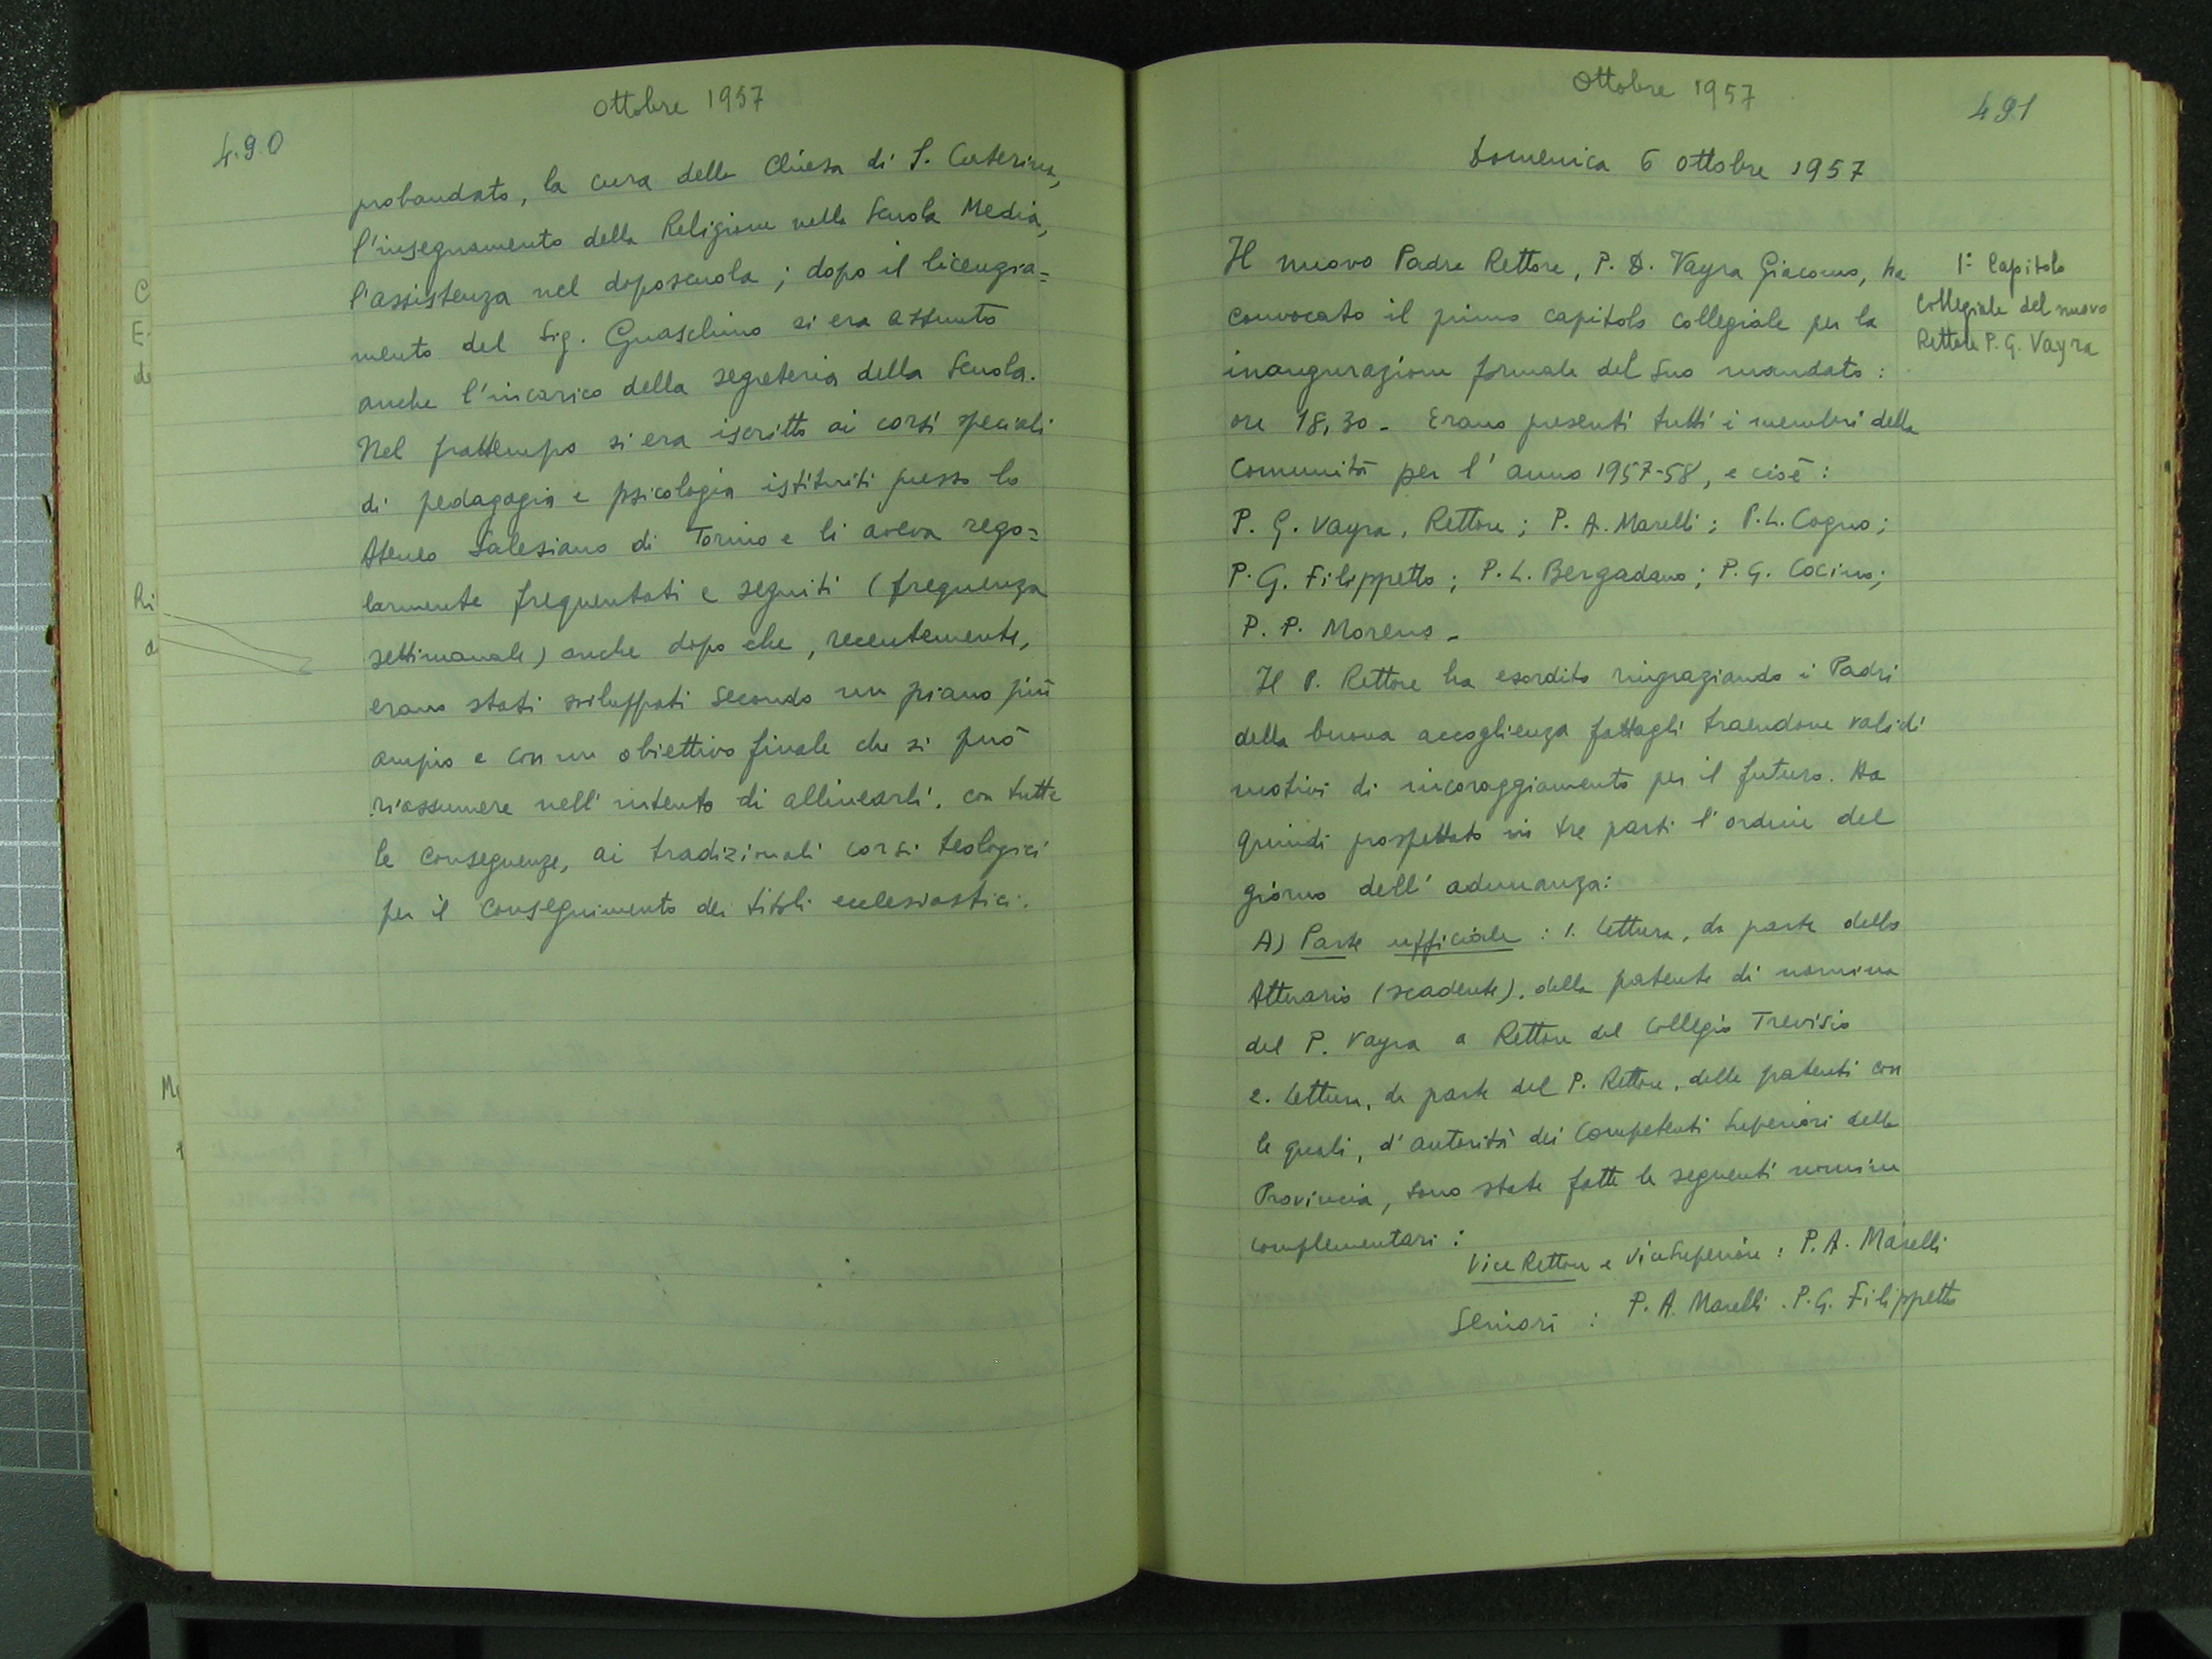 Ottobre 1957
490
probandato, la cura della Chiesa di S. Caterina,
l'insegnamento della Religione nella Scuola Media,
l'assistenza nel doposcuola; dopo il licenzia=
mento del Sig. Guaschino si era assunto
anche l'incarico della segreteria della Scuola.
Nel frattempo si era iscritto ai corsi speciali
di pedagogia e psicologia istituiti presso lo
Ateneo Salesiano di Torino e li aveva rego=
larmente frequentati e seguiti (frequenza
settimanale) anche dopo che, recentemente,
erano stati sviluppati secondo un piano più
ampio e con un obiettivo finale che si può
riassumere nell'intento di allinearli, con tutte
le conseguenze, ai tradizionali corsi teologici
per il conseguimento dei titoli ecclesiastici.
Ottobre 1957
491
Domenica 6 Ottobre 1957
Il nuovo Padre Rettore, P. D. Vayra Giacomo, ha
convocato il primo capitolo collegiale per la
inaugurazione formale del Suo mandato:
ore 18,30 - Erano presenti tutti i membri della
Comunità per l'anno 1957-58, e cioè:
P. G. Vayra, Rettore; P. A. Marelli; P. L. Cogno;
P. G. Filippetto; P. L. Bergadano; P. G. Cocino;
P. P. Moreno -
Il P. Rettore ha esordito ringraziando i Padri
della buona accoglienza fattagli traendone validi
motivi di incoraggiamento per il futuro. Ha
quindi prospettato in tre parti l'ordine del
giorno dell'adunanza:
A) Parte ufficiale: 1. Lettura, da parte dello
Attuario (scadente), della patente di nomina
del P. Vayra a Rettore del Collegio Trevisio
2. Lettura, da parte del P. Rettore, delle patenti con
le quali, d'autorità dei Competenti Superiori della
Provincia, sono state fatte le seguenti nomine
complementari:
Vice Rettore e Vice Superiore: P. A. Marelli
Seniori: P. A. Marelli. P. G. Filippetto
1° Capitolo
Collegiale del nuovo
Rettore P. G. Vayra